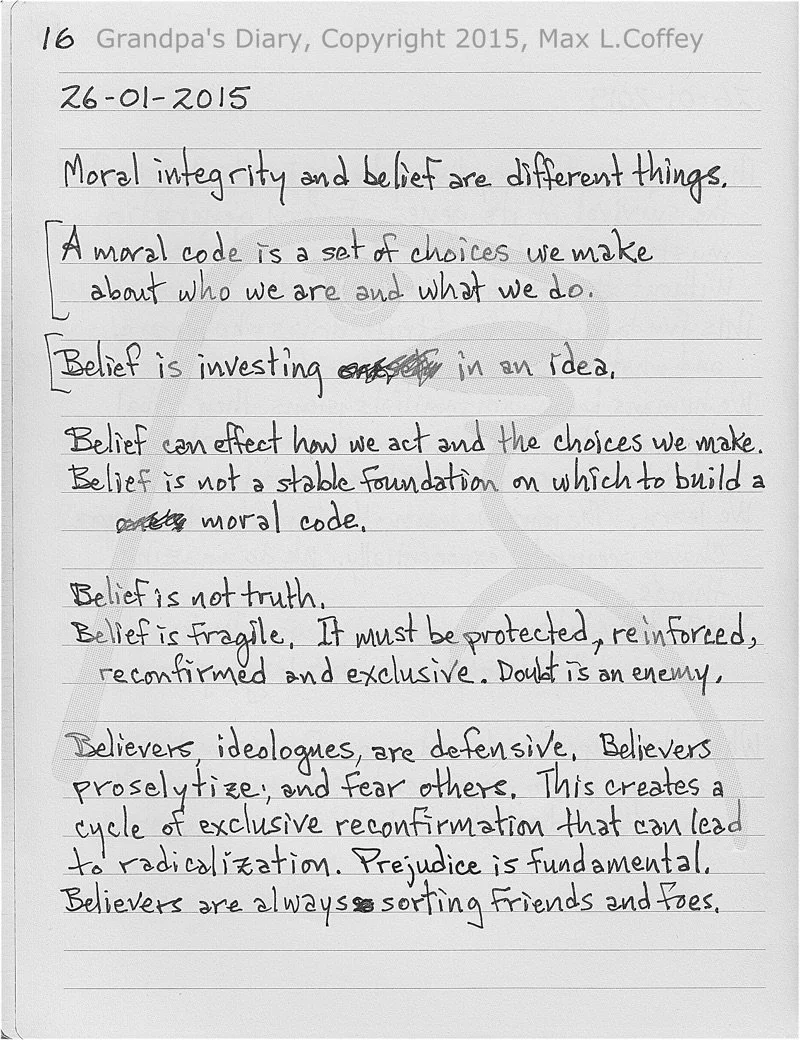 16 Grandpa's Diary, Copyright 2015, Max L.Coffey
26-01-2015
Moral integrity and belief are different things.
A moral code is a set of choices we make
about who we are and what we do.
Belief is investing in an idea.
Belief can effect how we act and the choices we make.
Belief is not a stable foundation on which to build a
moral code.
Belief is not truth.
Belief is fragile. It must be protected, reinforced,
reconfirmed and exclusive. Doubt is an enemy.
Believers, ideologues, are defensive. Believers
proselytize, and fear others. This creates a
cycle of exclusive reconfirmation that can lead
to radicalization. Prejudice is fundamental.
Believers are always sorting friends and foes.